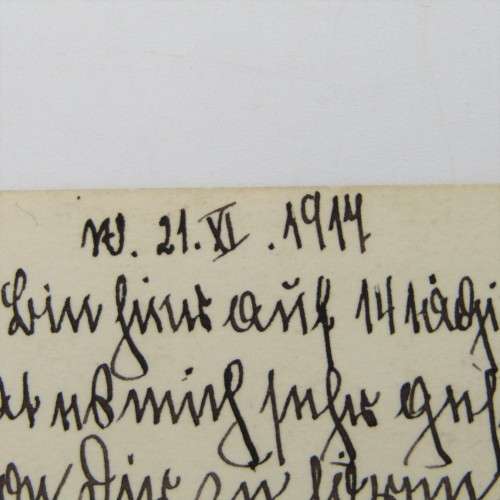 W. 21. XI. 1917
Bin hier auf 14 tägi
es mich sehr
von Dir zu hören